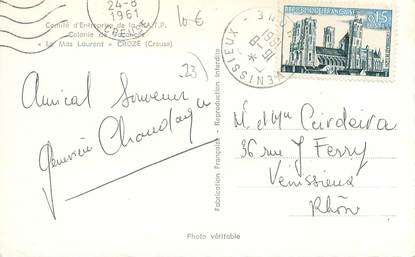 24-8
1961
10 €
Comité d'Entreprise de la R.A.T.P.
Colonie de Vacances
« Le Mas Laurent » CROZE (Creuse)
(23)
VENISSIEUX RHONE
REPUBLIQUE FRANÇAISE 0,15
POSTES
Amical Souvenir
Geneviève
Fabrication Française - Reproduction Interdite
M et Mme Cerdeira
36 rue J Ferry
Venissieux
Rhône
Photo véritable